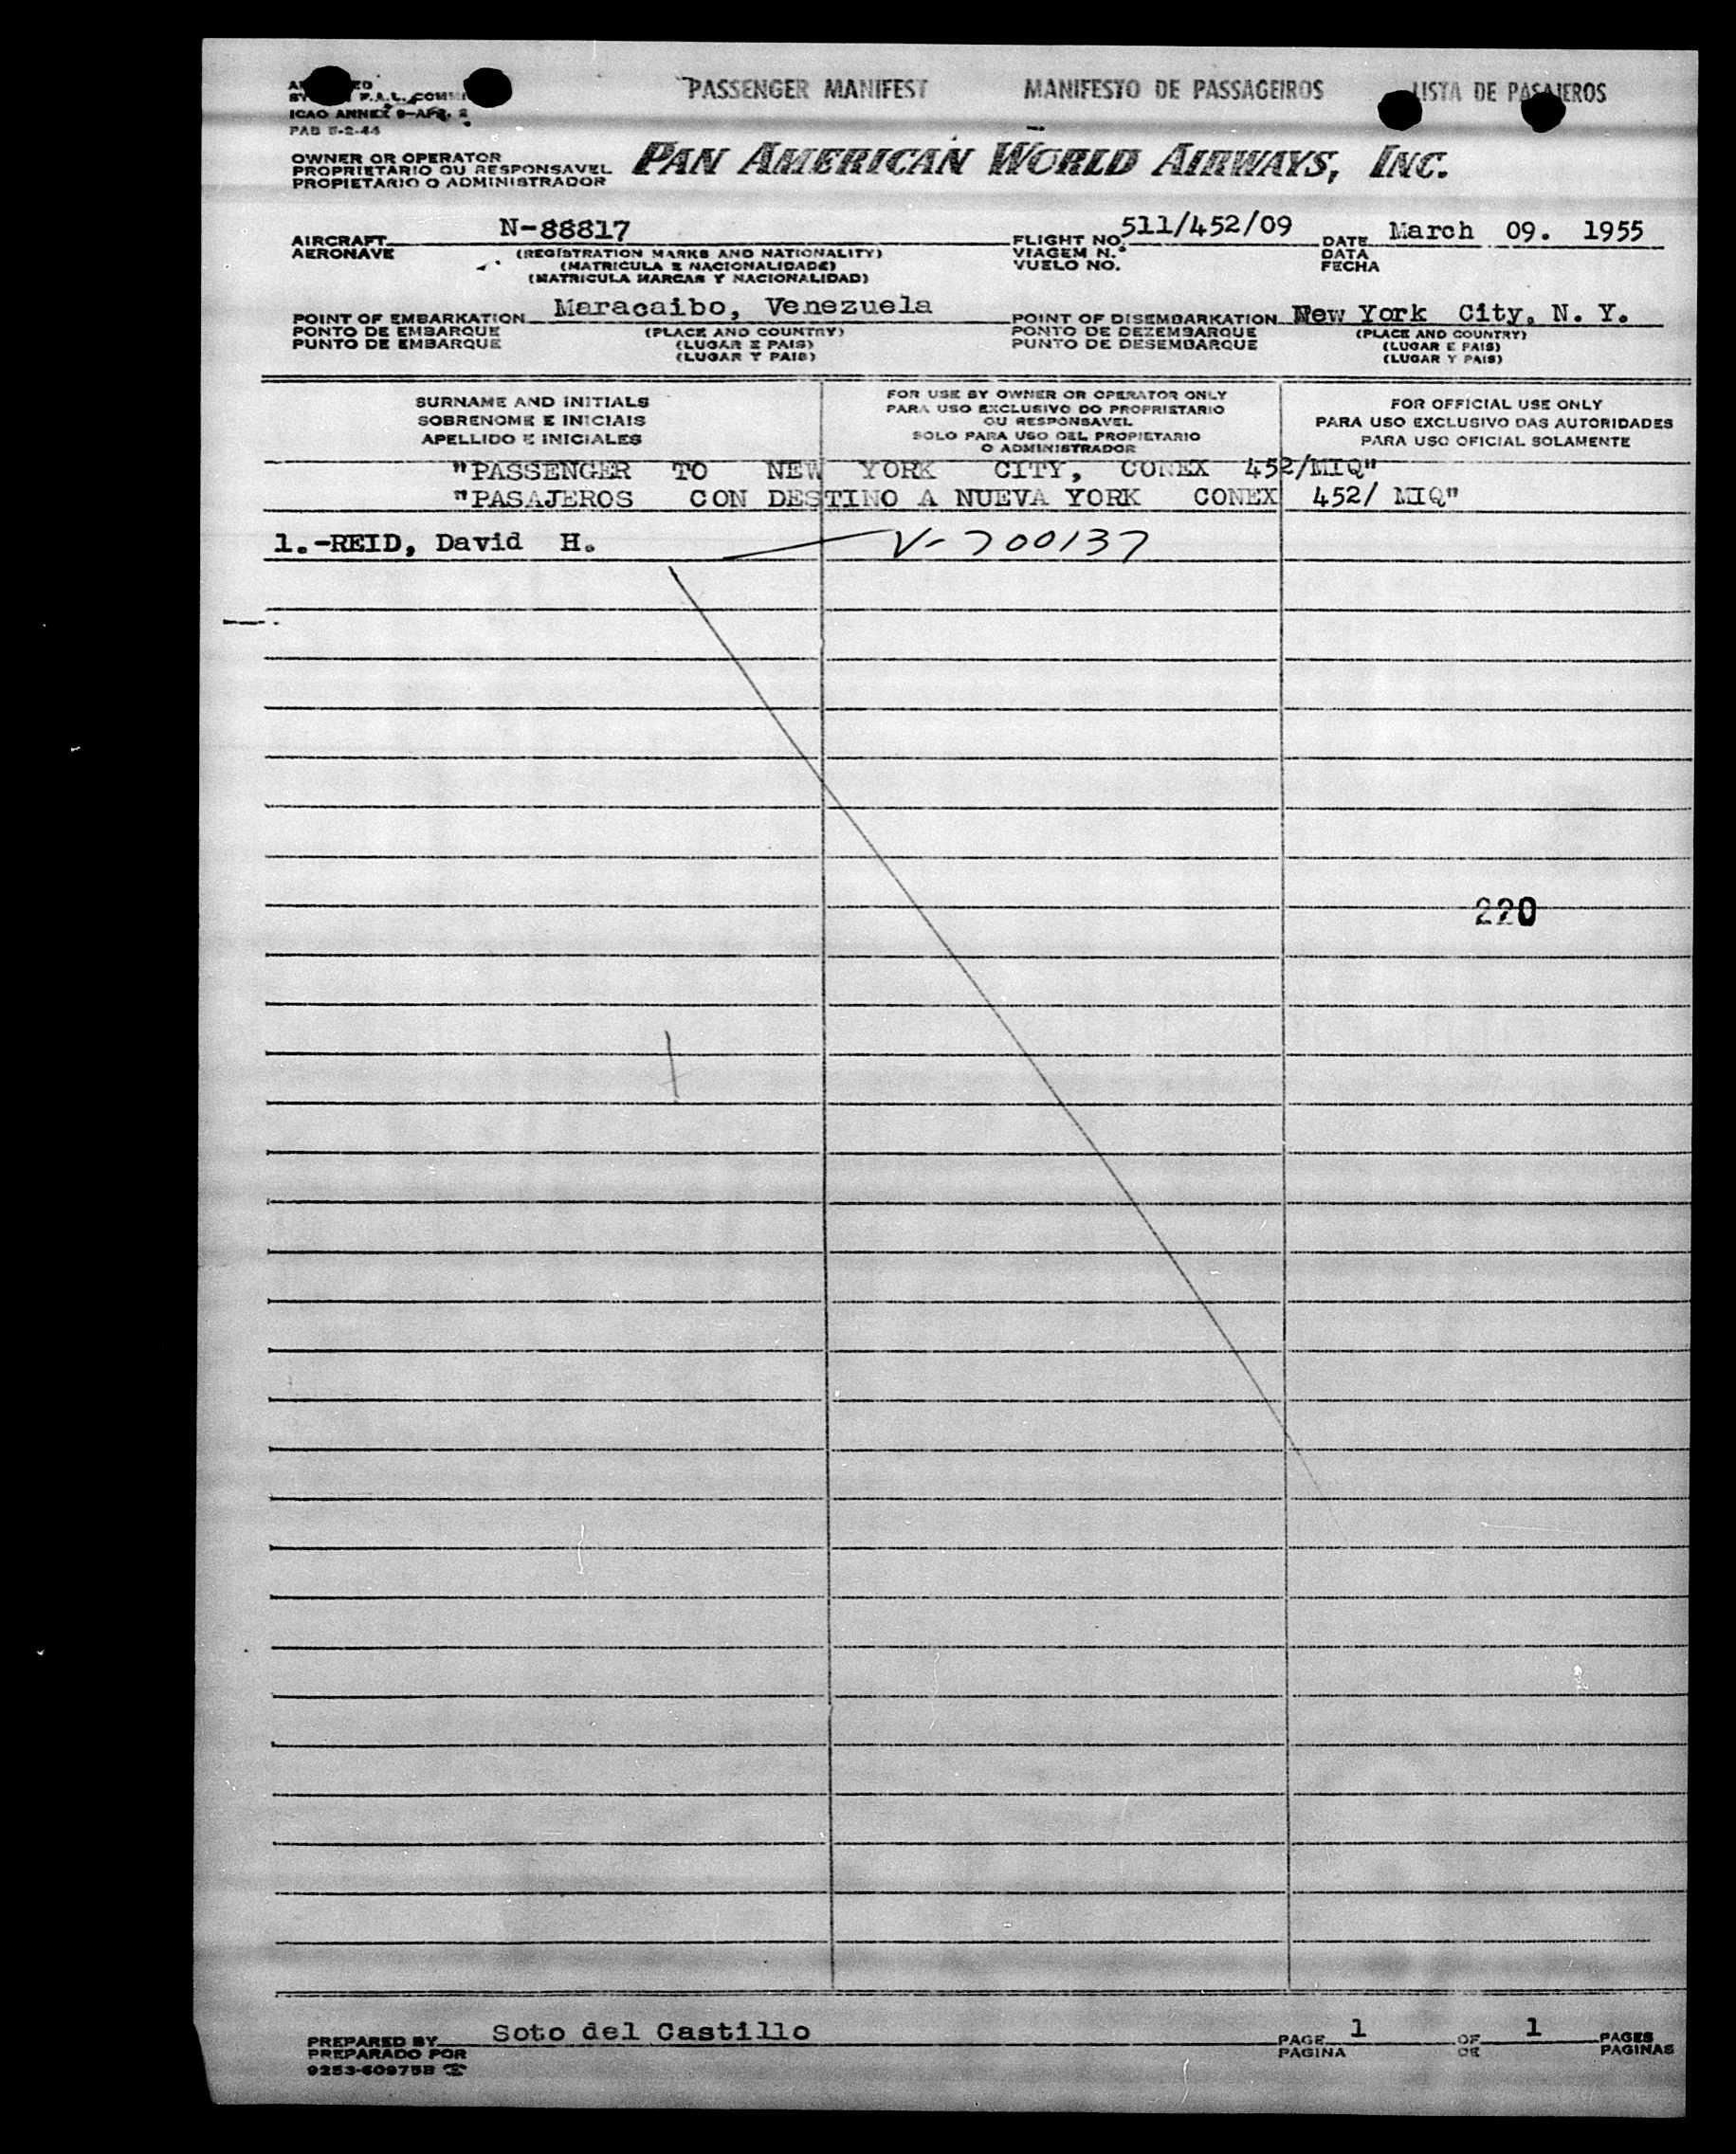 PASSENGER MANIFEST MANIFESTO DE PASSAGEIROS LISTA DE PASAJEROS
ICAO ANNEX 9-APR. 2
OWNER OR OPERATOR
PROPRIETARIO OU RESPONSAVEL
PROPIETARIO O ADMINISTRADOR
PAN AMERICAN WORLD AIRWAYS, INC.
AIRCRAFT N-88817 FLIGHT NO. 511/452/09 DATE March 09. 1955
AERONAVE (REGISTRATION MARKS AND NATIONALITY) VIAGEM N.º DATA
(MATRICULA E NACIONALIDADE) VUELO NO. FECHA
(MATRICULA MARCAS Y NACIONALIDAD)
POINT OF EMBARKATION Maracaibo, Venezuela POINT OF DISEMBARKATION New York City, N. Y.
PONTO DE EMBARQUE (PLACE AND COUNTRY) PONTO DE DEZEMBARQUE (PLACE AND COUNTRY)
PUNTO DE EMBARQUE (LUGAR E PAIS) PUNTO DE DESEMBARQUE (LUGAR E PAIS)
(LUGAR Y PAIS) (LUGAR Y PAIS)
SURNAME AND INITIALS
SOBRENOME E INICIAIS
APELLIDO E INICIALES
FOR USE BY OWNER OR OPERATOR ONLY
PARA USO EXCLUSIVO DO PROPRIETARIO
OU RESPONSAVEL
SOLO PARA USO DEL PROPIETARIO
O ADMINISTRADOR
FOR OFFICIAL USE ONLY
PARA USO EXCLUSIVO DAS AUTORIDADES
PARA USO OFICIAL SOLAMENTE
"PASSENGER TO NEW YORK CITY, CONEX 452/MIQ"
"PASAJEROS CON DESTINO A NUEVA YORK CONEX 452/ MIQ"
1.-REID, David H. V-700137
220
PREPARED BY Soto del Castillo PAGE 1 OF 1 PAGES
PREPARADO POR PAGINA DE PAGINAS
9253-609758